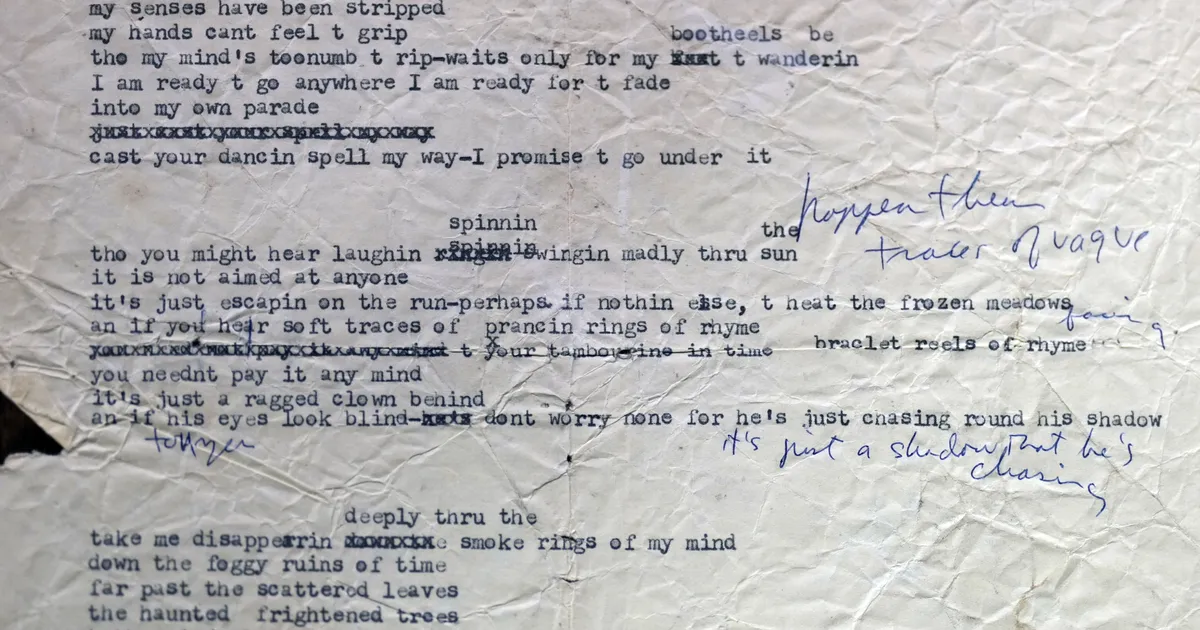 my senses have been stripped
my hands cant feel t grip
bootheels be
tho my mind's toonumb t rip-waits only for my t wanderin
I am ready t go anywhere I am ready for t fade
into my own parade
just cast your spell my way
cast your dancin spell my way-I promise t go under it
spinnin
the
tho you might hear laughin spinnin swingin madly thru sun
it is not aimed at anyone
it's just escapin on the run-perhaps if nothin else, t heat the frozen meadows
facing
an if you hear soft traces of prancin rings of rhyme
t your tambourine in time
braclet reels of rhyme
you neednt pay it any mind
it's just a ragged clown behind
an if his eyes look blind- dont worry none for he's just chasing round his shadow
it's just a shadow that he's
chasing
deeply thru the
take me disapperrin smoke rings of my mind
down the foggy ruins of time
far past the scattered leaves
the haunted frightened trees